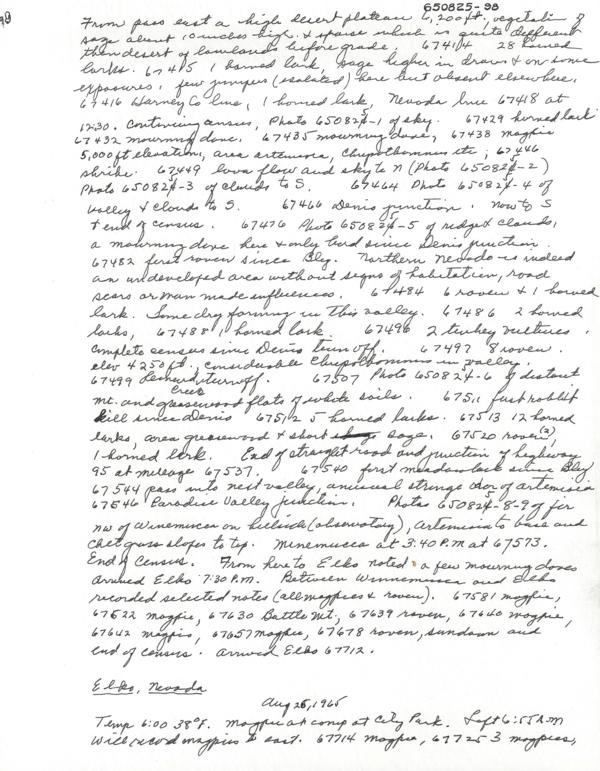 98
650825-98
From pass east a high desert plateau 6,200 ft, vegetation of
sage about 10 inches high & sparse which is quite different
than desert of lowlands before grade. 67414 28 horned
larks. 67415 1 horned lark, sage higher in draws & on some
exposures, few junipers (isolated) here but absent elsewhere,
67416 Harney Co line, 1 horned lark, Nevada line 67418 at
12:30. Continuing census, Photo 650825-1 of sky. 67429 horned lark
67432 mourning dove. 67435 mourning dove, 67438 magpie
5,000 ft elevation, area artemisia, Chrysothamnus etc; 67446
shrike. 67449 lava flow and sky to N (Photo 650825-2)
Photo 650825-3 of clouds to S. 67464 Photo 650825-4 of
valley & clouds to S. 67466 Denis junction. Now to S
& end of census. 67476 Photo 650825-5 of ridge & clouds,
a mourning dove here & only bird since Denis junction.
67482 first raven since Bly. Northern Nevada is indeed
an undeveloped area without signs of habitation, road
scars or man made influences. 67484 6 raven & 1 horned
lark. Some dry farming in this valley. 67486 2 horned
larks, 67488 1 horned lark. 67496 2 turkey vultures.
Complete census since Denis turn off. 67497 8 raven.
elev 4250 ft. considerable Chrysothamnus in valley.
67499 Leonard Creek turnoff. 67507 Photo 650825-6 of distant
mt. and greasewood flats of white soils. 67511 first rabbit
kill since Denis 67512 5 horned larks. 67513 12 horned
larks, area greasewood & short sage. 67520 raven (2),
1 horned lark. End of straight road and junction of highway
95 at mileage 67537. 67540 first meadowlark since Bly
67544 pass into next valley, unusual strange odor of artemisia
67546 Paradise Valley junction. Photos 650825-8-9 of fir
nw of Winnemucca on hillside (observatory), artemisia to base and
cheat grass slopes to top. Winnemucca at 3:40 P.M at 67573.
End of Census. From here to Elko noted a few mourning doves
arrived Elko 7:30 P.M. Between Winnemucca and Elko
recorded selected notes (all magpies & raven). 67581 magpie,
67622 magpie, 67630 Battle Mt, 67639 raven, 67640 magpie,
67642 magpie, 67657 magpie, 67678 raven, sundown and
end of census. arrived Elko 67712.
Elko, Nevada
Aug 26, 1965
Temp 6:00 38°F. Magpie at camp at City Park. Left 6:55 A.M
Will record magpies to east. 67714 magpie, 67725 3 magpies,